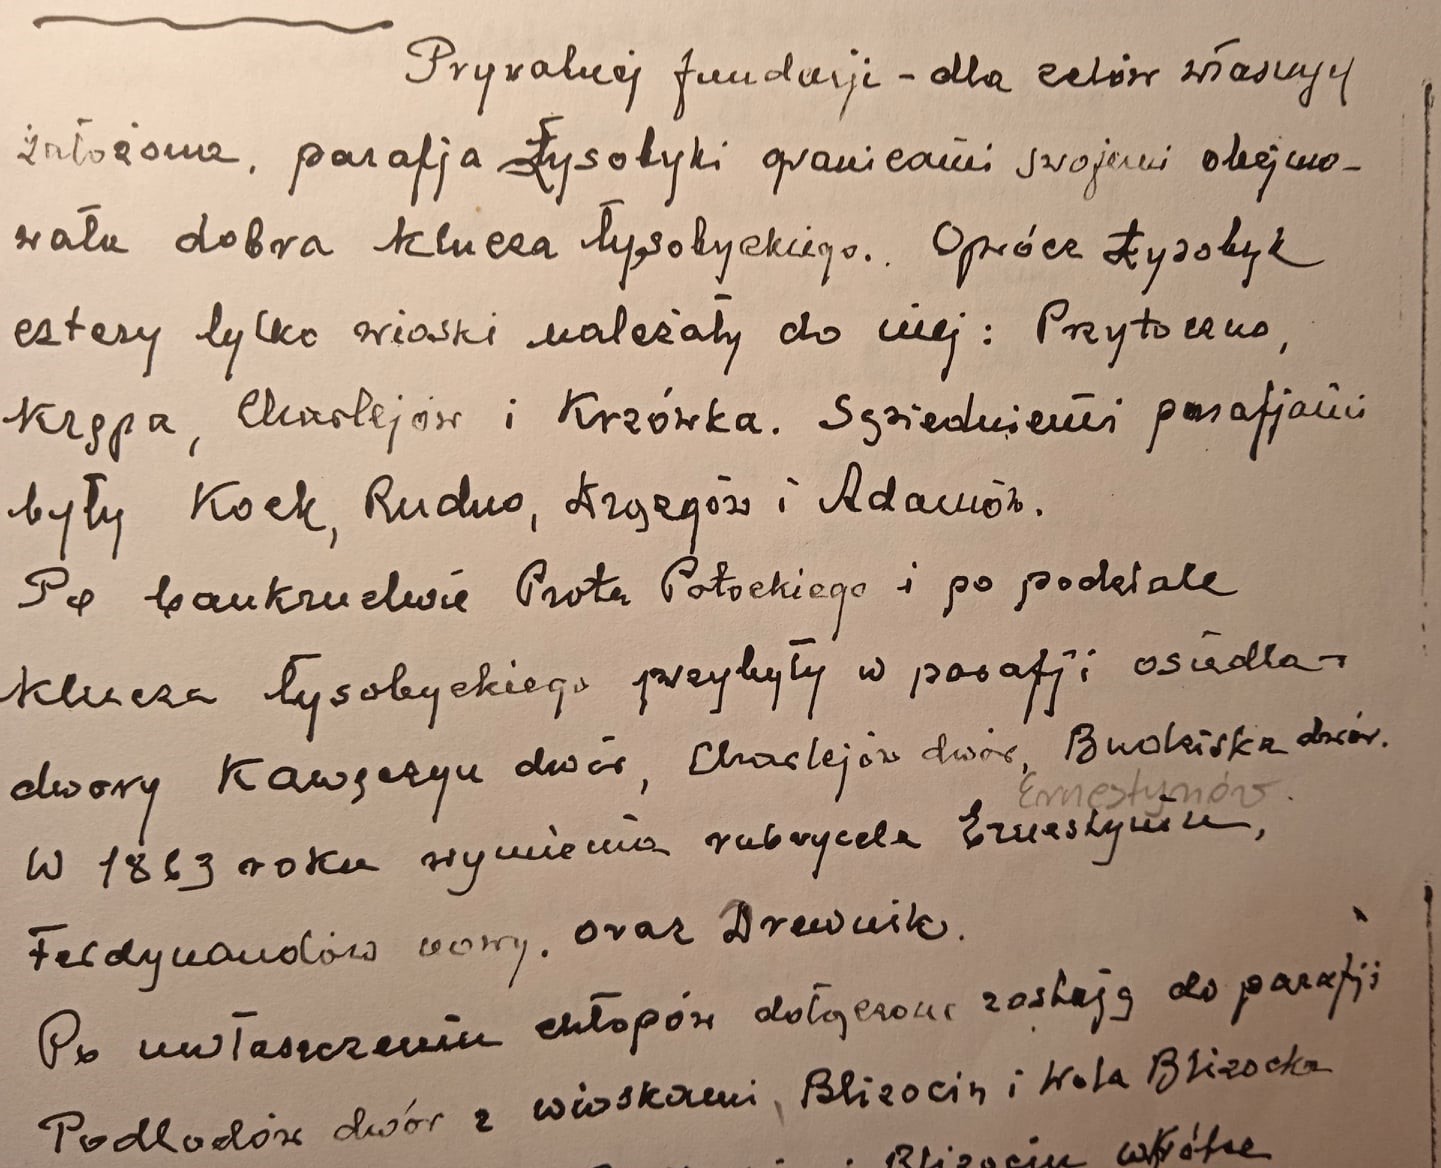 Prywatnej fundacji - dla celów własnych
założona, parafja Łysobyki granicami swojemi obejmo-
wała dobra klucza łysobyckiego. Oprócz Łysobyk
cztery tylko wioski należały do niej: Przytoczno,
Krępa, Charlejów i Krzówka. Sąsiedniemi parafjami
były Kock, Rudno, Drążgów i Adamów.
Po bankructwie Prota Potockiego i po podziale
klucza łysobyckiego przybyły w parafji osiedla-
dwory Kawęczyn dwór, Charlejów dwór, Budziska dwór.
Ernestynów
W 1863 roku wymienia rubrycela Ernestynin,
Ferdynandów nowy. oraz Drewnik.
Po uwłaszczeniu chłopów dołączone zostają do parafji
Podlodów dwór z wioskami, Blizocin i Wola Blizocka
i Blizocin wkrótce